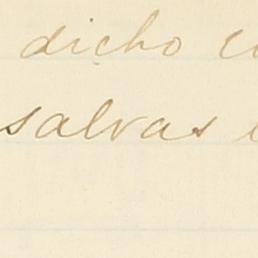 dicho
salvas